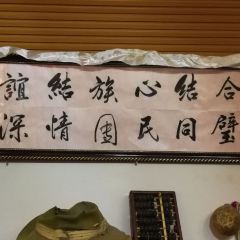 合璧
結同
心民
族團
結情
誼深